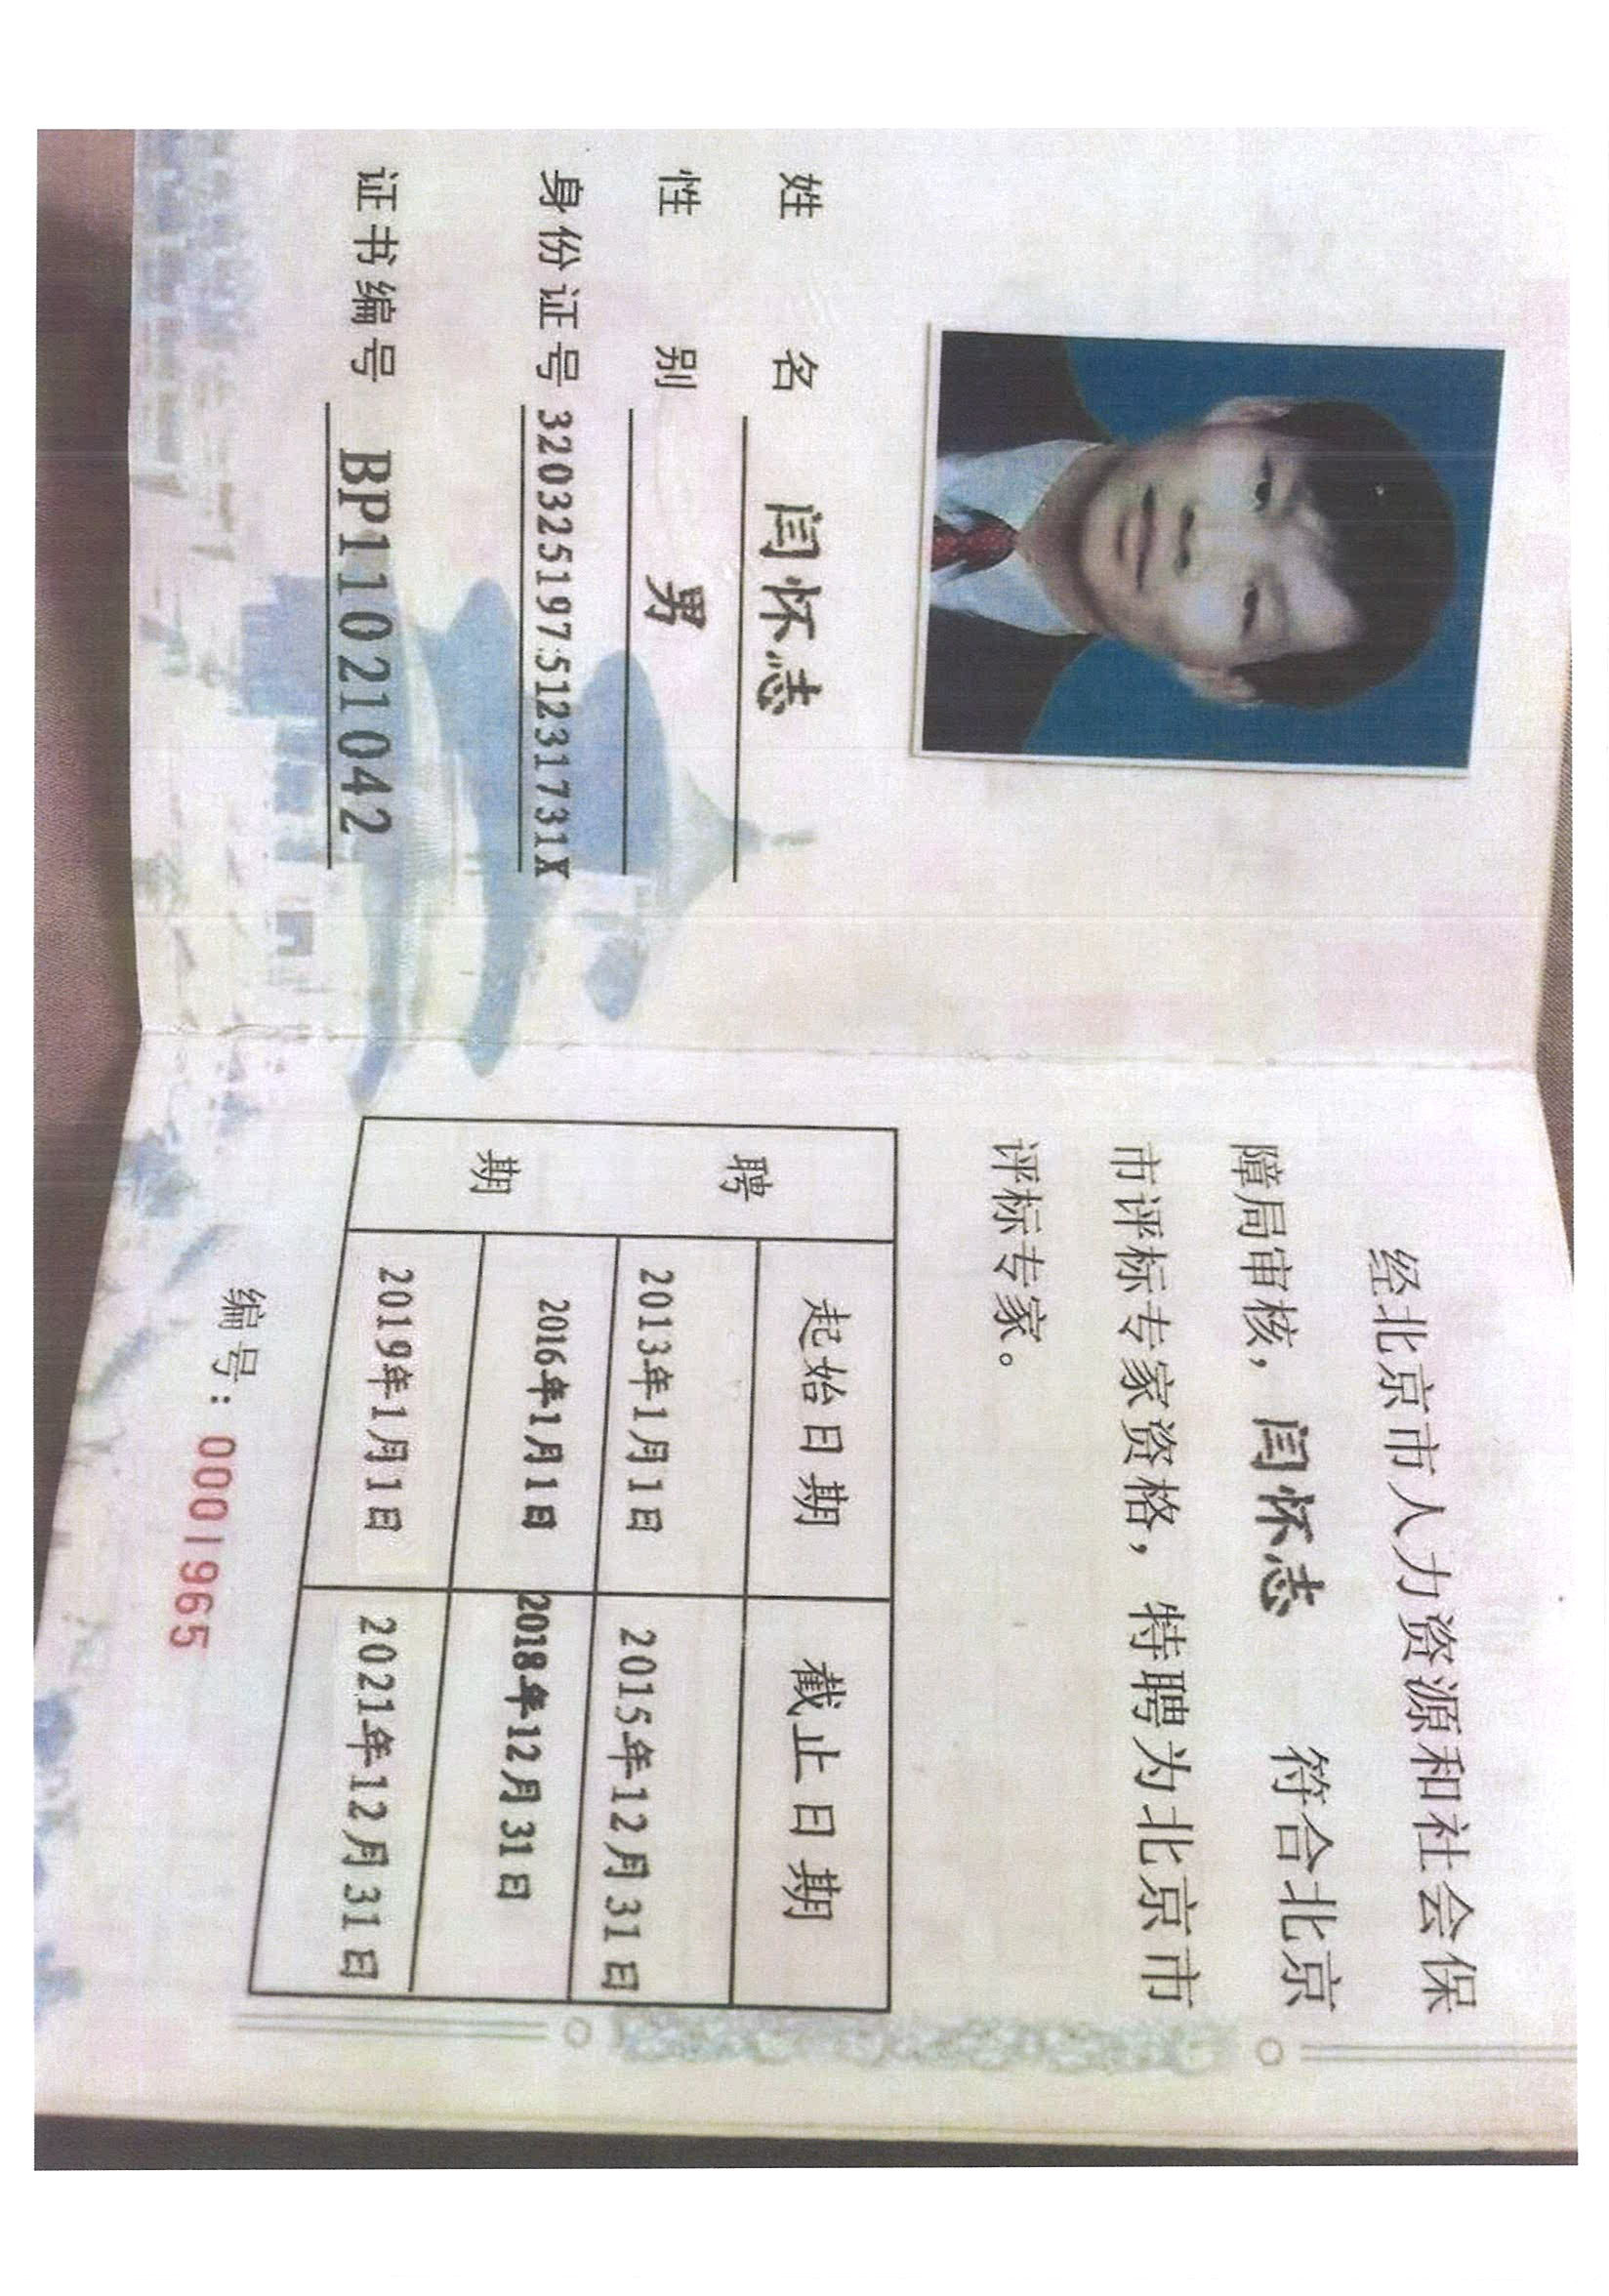 姓 名 闫怀志
性 别 男
身份证号 32032519751231731X
证书编号 BP11021042
经北京市人力资源和社会保
障局审核，闫怀志 符合北京
市评标专家资格，特聘为北京市
评标专家。
聘期 起始日期 截止日期
2013年1月1日 2015年12月31日
2016年1月1日 2018年12月31日
2019年1月1日 2021年12月31日
编号：0001965